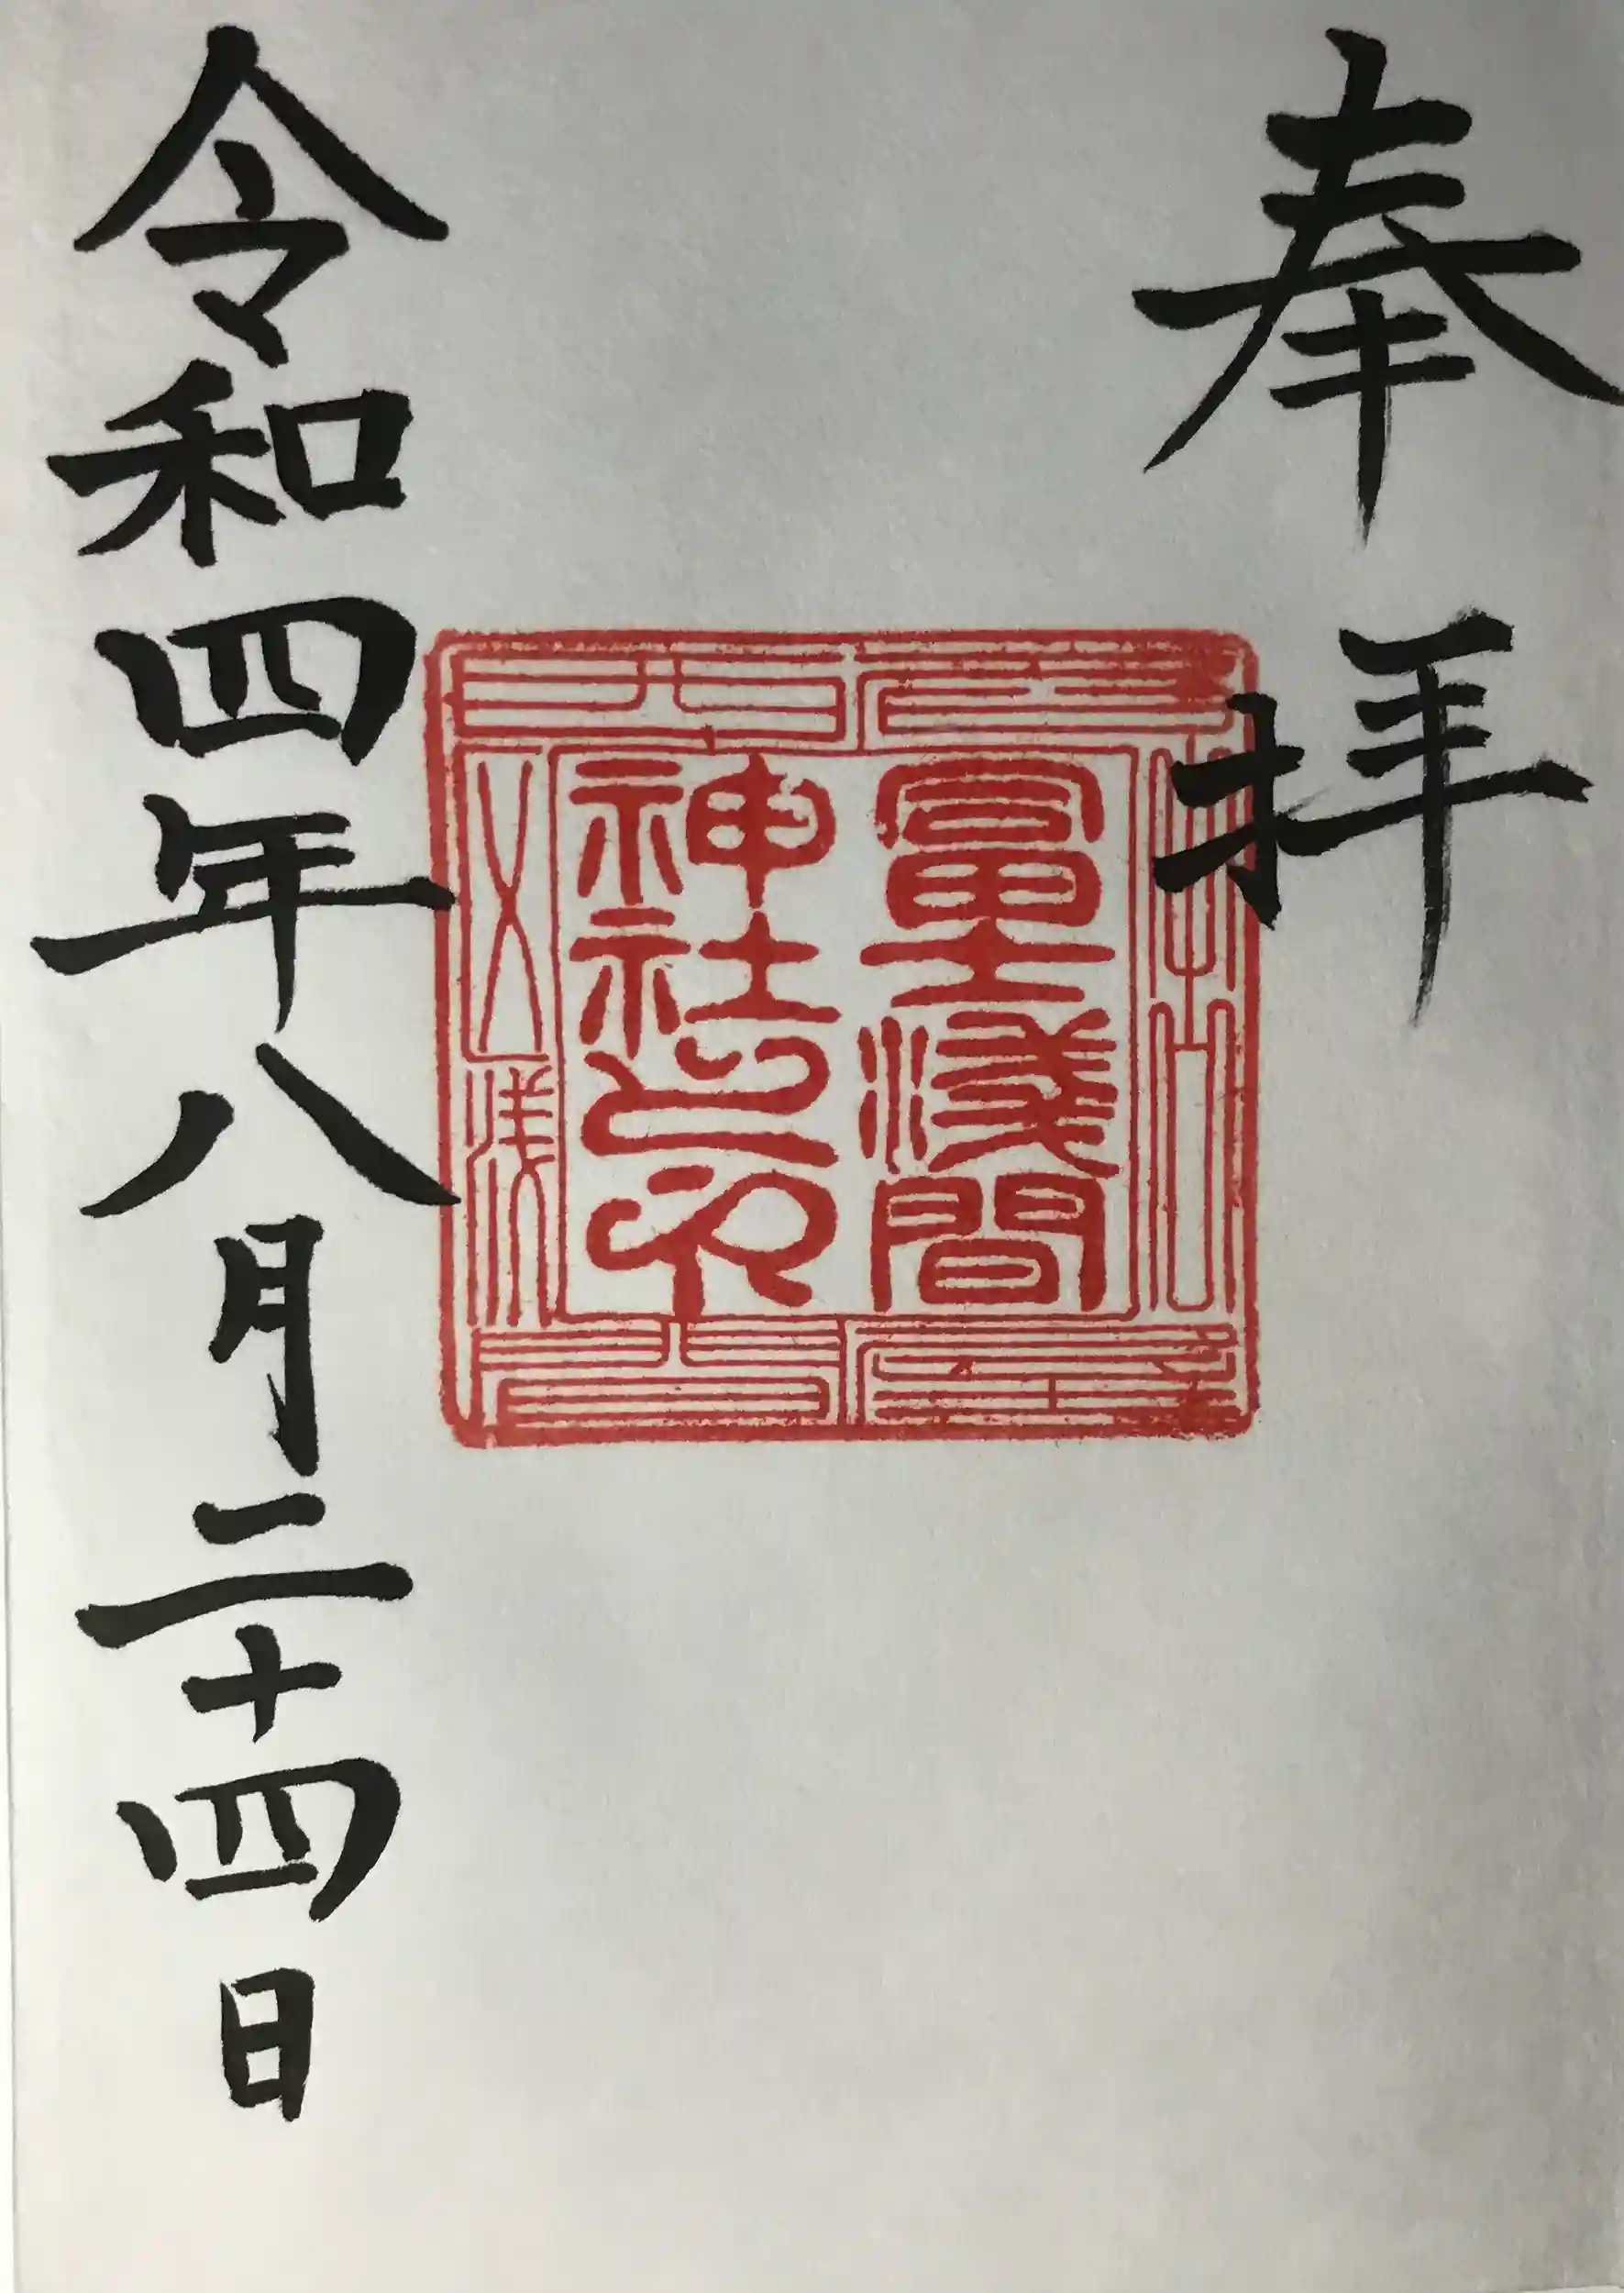 奉拝
冨士浅間
神社之印
令和四年八月二十四日